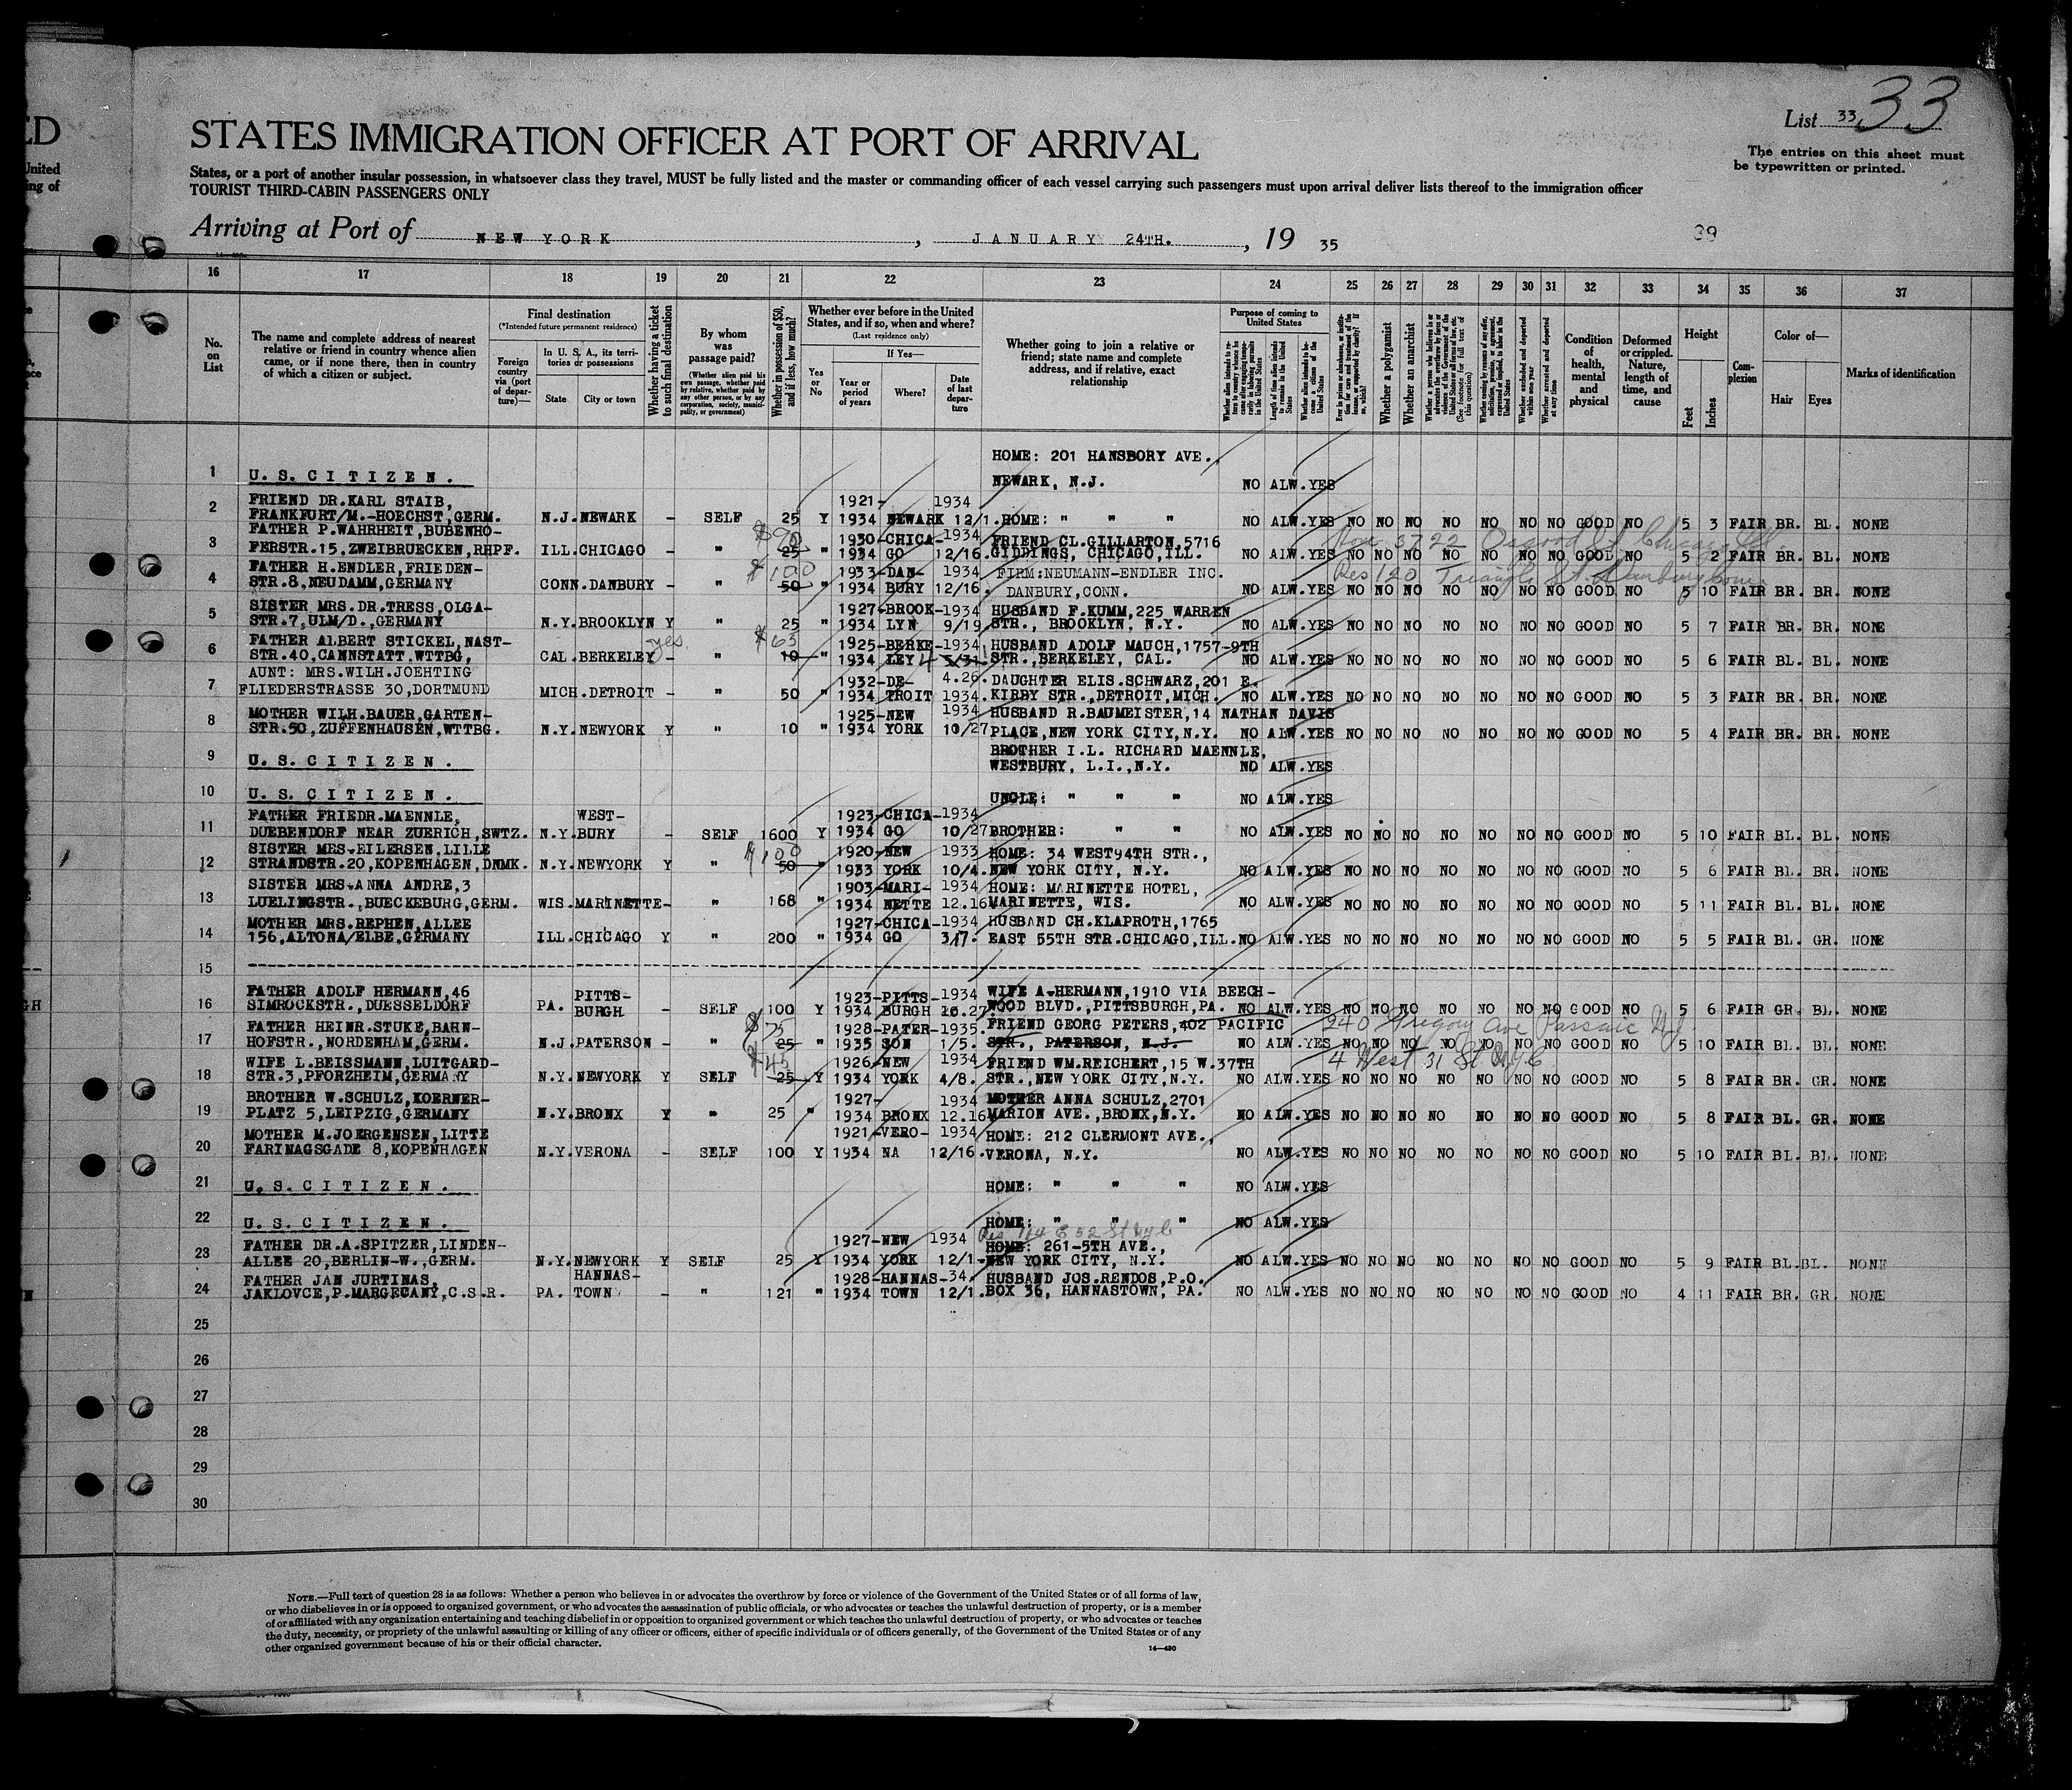 ED
List 33 33
STATES IMMIGRATION OFFICER AT PORT OF ARRIVAL
The entries on this sheet must
be typewritten or printed.
United
ing of
States, or a port of another insular possession, in whatsoever class they travel, MUST be fully listed and the master or commanding officer of each vessel carrying such passengers must upon arrival deliver lists thereof to the immigration officer
TOURIST THIRD-CABIN PASSENGERS ONLY
Arriving at Port of NEW YORK, JANUARY 24TH., 19 35
39
16 17 18 19 20 21 22 23 24 25 26 27 28 29 30 31 32 33 34 35 36 37
No. on List
The name and complete address of nearest relative or friend in country whence alien came, or if none there, then in country of which a citizen or subject.
Final destination
(*Intended future permanent residence)
Foreign country via (port of departure)—
In U. S. A., its territories or possessions
State City or town
Whether having a ticket to such final destination
By whom was passage paid?
(Whether alien paid his own passage, whether paid by relative, whether paid by any other person, or by any corporation, society, municipality, or government)
Whether in possession of $50, and if less, how much?
Whether ever before in the United States, and if so, when and where?
(Last residence only)
Yes or No
If Yes—
Year or period of years
Where?
Date of last departure
Whether going to join a relative or friend; state name and complete address, and if relative, exact relationship
Purpose of coming to United States
Whether alien intends to return to country whence he came after engaging temporarily in laboring pursuits in the United States
Length of time alien intends to remain in the United States
Whether alien intends to become a citizen of the United States
Whether a polygamist
Whether an anarchist
Whether excluded and deported within one year
Whether arrested and deported at any time
Condition of health, mental and physical
Deformed or crippled. Nature, length of time, and cause
Height
Feet Inches
Complexion
Color of—
Hair Eyes
Marks of identification
HOME: 201 HANSBORY AVE.,
1 U.S. CITIZEN. NEWARK, N.J. NO ALW.YES
2 FRIEND DR.KARL STAIB, 1921- 1934
FRANKFURT/M.-HOECHST,GERM. N.J. NEWARK - SELF 25 Y 1934 NEWARK 12/1. HOME: " " " NO ALW.YES NO NO NO NO NO NO NO GOOD NO 5 3 FAIR BR. BL. NONE
3 FATHER P.WAHRHEIT,BUBENHO- $90 1930-CHICA-1934 FRIEND CL.GILLARTON,5716 3722 Osgood St Chicago Ill.
FERSTR.15,ZWEIBRUECKEN,RHPF. ILL.CHICAGO - " 25 " 1934 GO 12/16. GIDDINGS, CHICAGO,ILL. NO ALW.YES NO NO NO NO NO NO NO GOOD NO 5 2 FAIR BR. BL. NONE
4 FATHER H.ENDLER,FRIEDEN- $100 1933-DAN- 1934 FIRM:NEUMANN-ENDLER INC. Res 120 Triangle St. Danbury Conn
STR.8,NEUDAMM,GERMANY CONN.DANBURY - " 50 " 1934 BURY 12/16. DANBURY,CONN. NO ALW.YES NO NO NO NO NO NO NO GOOD NO 5 10 FAIR BR. BR. NONE
5 SISTER MRS.DR.TRESS,OLGA- 1927-BROOK-1934 HUSBAND F.KUMM,225 WARREN
STR.7,ULM/D.,GERMANY N.Y.BROOKLYN Y " 25 " 1934 LYN 9/19 STR., BROOKLYN, N.Y. NO ALW.YES NO NO NO NO NO NO NO GOOD NO 5 7 FAIR BR. BR. NONE
6 FATHER ALBERT STICKEL,NAST- yes $65 1925-BERKE-1934 HUSBAND ADOLF MAUCH,1757-9TH
STR.40,CANNSTATT,WTTBG, CAL.BERKELEY - " 10 " 1934 LEY 4 5/31. STR.,BERKELEY, CAL. NO ALW.YES NO NO NO NO NO NO NO GOOD NO 5 6 FAIR BL. BL. NONE
7 AUNT: MRS.WILH.JOEHTING 1932-DE- 4.26. DAUGHTER ELIS.SCHWARZ,201 E.
FLIEDERSTRASSE 30,DORTMUND MICH.DETROIT - " 50 " 1934 TROIT 1934. KIRBY STR.,DETROIT,MICH. NO ALW.YES NO NO NO NO NO NO NO GOOD NO 5 3 FAIR BR. BR. NONE
8 MOTHER WILH.BAUER,GARTEN- 1925-NEW 1934 HUSBAND R.BAUMEISTER,14 NATHAN DAVIS
STR.50,ZUFFENHAUSEN,WTTBG. N.Y.NEWYORK Y " 10 " 1934 YORK 10/27 PLACE,NEW YORK CITY,N.Y. NO ALW.YES NO NO NO NO NO NO NO GOOD NO 5 4 FAIR BR. BR. NONE
BROTHER I.L. RICHARD MAENNLE,
9 U.S. CITIZEN. WESTBURY, L.I.,N.Y. NO ALW.YES
10 U.S. CITIZEN. UNCLE: " " " NO ALW.YES
11 FATHER FRIEDR.MAENNLE, WEST- 1923-CHICA-1934
DUEBENDORF NEAR ZUERICH,SWTZ. N.Y.BURY - SELF 1600 Y 1934 GO 10/27 BROTHER: " " NO ALW.YES NO NO NO NO NO NO NO GOOD NO 5 10 FAIR BL. BL. NONE
12 SISTER MRS.EILERSEN,LILLE $100 1920-NEW 1933 HOME: 34 WEST94TH STR.,
STRANDSTR.20,KOPENHAGEN,DNMK. N.Y.NEWYORK Y " 50 " 1933 YORK 10/4. NEW YORK CITY, N.Y. NO ALW.YES NO NO NO NO NO NO NO GOOD NO 5 6 FAIR BL. BR. NONE
13 SISTER MRS.ANNA ANDRE,3 1903-MARI- 1934 HOME: MARINETTE HOTEL,
LUELINGSTR.,BUECKEBURG,GERM. WIS.MARINETTE- " 168 " 1934 NETTE 12.16 MARINETTE, WIS. NO ALW.YES NO NO NO NO NO NO NO GOOD NO 5 11 FAIR BL. BL. NONE
14 MOTHER MRS.REPHEN,ALLEE 1927-CHICA-1934 HUSBAND CH.KLAPROTH,1765
156,ALTONA/ELBE,GERMANY ILL.CHICAGO Y " 200 " 1934 GO 3/7. EAST 55TH STR.CHICAGO,ILL. NO ALW.YES NO NO NO NO NO NO NO GOOD NO 5 5 FAIR BL. GR. NONE
15
16 FATHER ADOLF HERMANN,46 PITTS- 1923-PITTS-1934 WIFE A.HERMANN,1910 VIA BEECH-
SIMROCKSTR.,DUESSELDORF PA. BURGH - SELF 100 Y 1934 BURGH 10.27 WOOD BLVD.,PITTSBURGH,PA. NO ALW.YES NO NO NO NO NO NO NO GOOD NO 5 6 FAIR GR. BL. NONE
17 FATHER HEINR.STUKE,BAHN- $75 1928-PATER-1935. FRIEND GEORG PETERS,402 PACIFIC 240 Gregory Ave Passaic NJ
HOFSTR.,NORDENHAM,GERM. N.J.PATERSON - " 25 " 1935 SON 1/5. STR., PATERSON, N.J. NO ALW.YES NO NO NO NO NO NO NO GOOD NO 5 10 FAIR BL. BL. NONE
18 WIFE L.BEISSMANN,LUITGARD- $45 1926-NEW 1934 FRIEND WM.REICHERT,15 W.37TH 4 West 31 St NYC
STR.3,PFORZHEIM,GERMANY N.Y.NEWYORK Y SELF 25 Y 1934 YORK 4/8. STR.,NEW YORK CITY,N.Y. NO ALW.YES NO NO NO NO NO NO NO GOOD NO 5 8 FAIR BR. GR. NONE
19 BROTHER W.SCHULZ,KOERNER- 1927- 1934 MOTHER ANNA SCHULZ,2701
PLATZ 5,LEIPZIG,GERMANY N.Y.BRONX Y " 25 " 1934 BRONX 12.16 MARION AVE.,BRONX,N.Y. NO ALW.YES NO NO NO NO NO NO NO GOOD NO 5 8 FAIR BL. GR. NONE
20 MOTHER M.JOERGENSEN,LITTE 1921-VERO- 1934 HOME: 212 CLERMONT AVE.,
FARIMAGSGADE 8,KOPENHAGEN N.Y.VERONA - SELF 100 Y 1934 NA 12/16. VERONA, N.Y. NO ALW.YES NO NO NO NO NO NO NO GOOD NO 5 10 FAIR BL. BL. NONE
21 U.S. CITIZEN. HOME: " " " NO ALW.YES
22 U.S. CITIZEN. HOME: " " " NO ALW.YES
Res 164 E 52 St NYC
23 FATHER DR.A.SPITZER,LINDEN- 1927-NEW 1934 HOME: 261-5TH AVE.,
ALLEE 20,BERLIN-W.,GERM. N.Y.NEWYORK Y SELF 25 Y 1934 YORK 12/1. NEW YORK CITY, N.Y. NO ALW.YES NO NO NO NO NO NO NO GOOD NO 5 9 FAIR BL.BL. NONE
24 FATHER JAN JURTINAS, HANNAS- 1928-HANNAS-34. HUSBAND JOS.RENDOS,P.O.
JAKLOVCE,P.MARGECANY,C.S.R. PA. TOWN - " 121 " 1934 TOWN 12/1. BOX 36, HANNASTOWN, PA. NO ALW.YES NO NO NO NO NO NO NO GOOD NO 4 11 FAIR BR. GR. NONE
25
26
27
28
29
30
NOTE.—Full text of question 28 is as follows: Whether a person who believes in or advocates the overthrow by force or violence of the Government of the United States or of all forms of law,
or who disbelieves in or is opposed to organized government, or who advocates the assassination of public officials, or who advocates or teaches the unlawful destruction of property, or is a member
of or affiliated with any organization entertaining and teaching disbelief in or opposition to organized government or which teaches the unlawful destruction of property, or who advocates or teaches
the duty, necessity, or propriety of the unlawful assaulting or killing of any officer or officers, either of specific individuals or of officers generally, of the Government of the United States or of any
other organized government because of his or their official character.
14—430